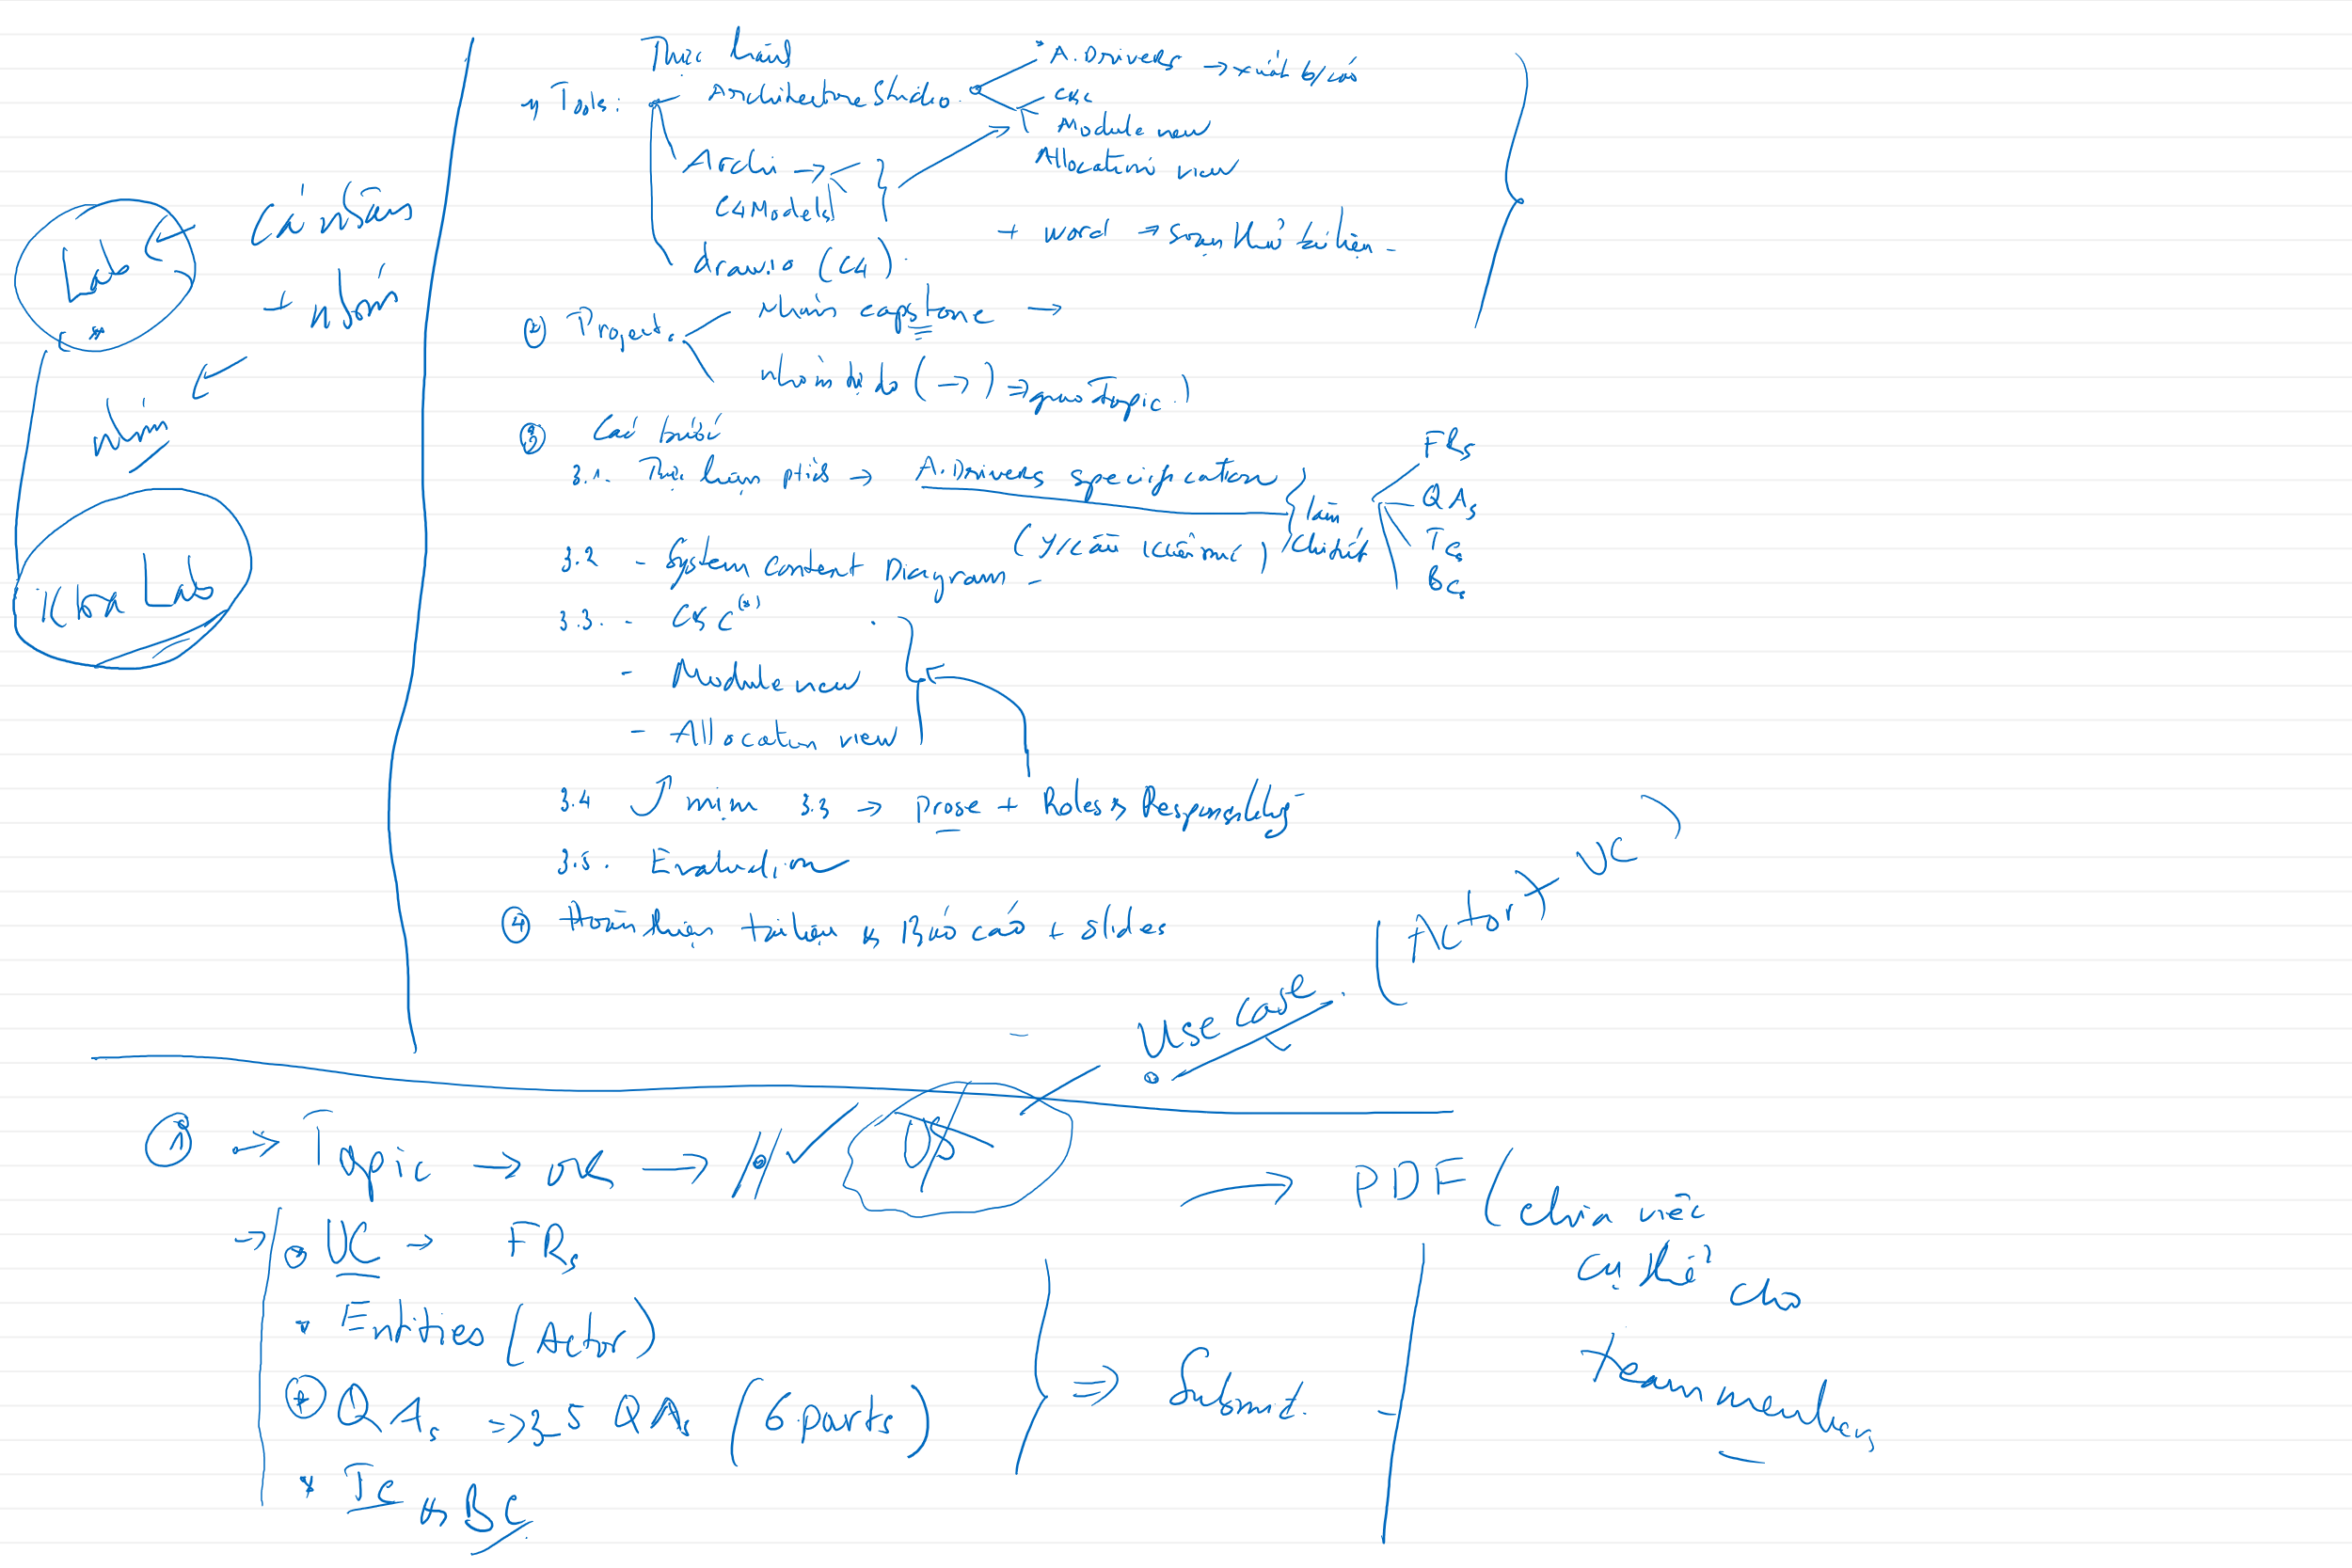 Lab
Cá nhân
+ nhóm
nhóm
Lab
Thực hành
1) Tools:
Architecture Studio
A. Drivers → xuất b/cáo
C&C
Module view
Allocation view
Archi →
C4 Models
drawio (C4)
+ word → soạn thảo tài liệu
② Project
nhóm capstone →
nhóm tự do (→) ⇒ Topic )
③ Các bước
3.1. Thực hiện ptích → A. Drivers specification
(y/cầu kiến trúc)
làm
chi tiết
FRs
QAs
TCs
BCs
3.2 - System Context Diagram -
3.3. - C&C (*)
- Module view
- Allocation view
3.4 3.3 → Prose + Roles & Responsibility
3.5. Evaluation
④ Hoàn thiện tài liệu & Báo cáo + slides
Use case
(Actor + UC)
① → Topic → ok →
→ PDF (chia việc
cụ thể cho
team members
→ UC → FRs
* Entities (Actor)
QAs ⇒ 3-5 QAs (6 parts)
* TC & BC
⇒ Submit.